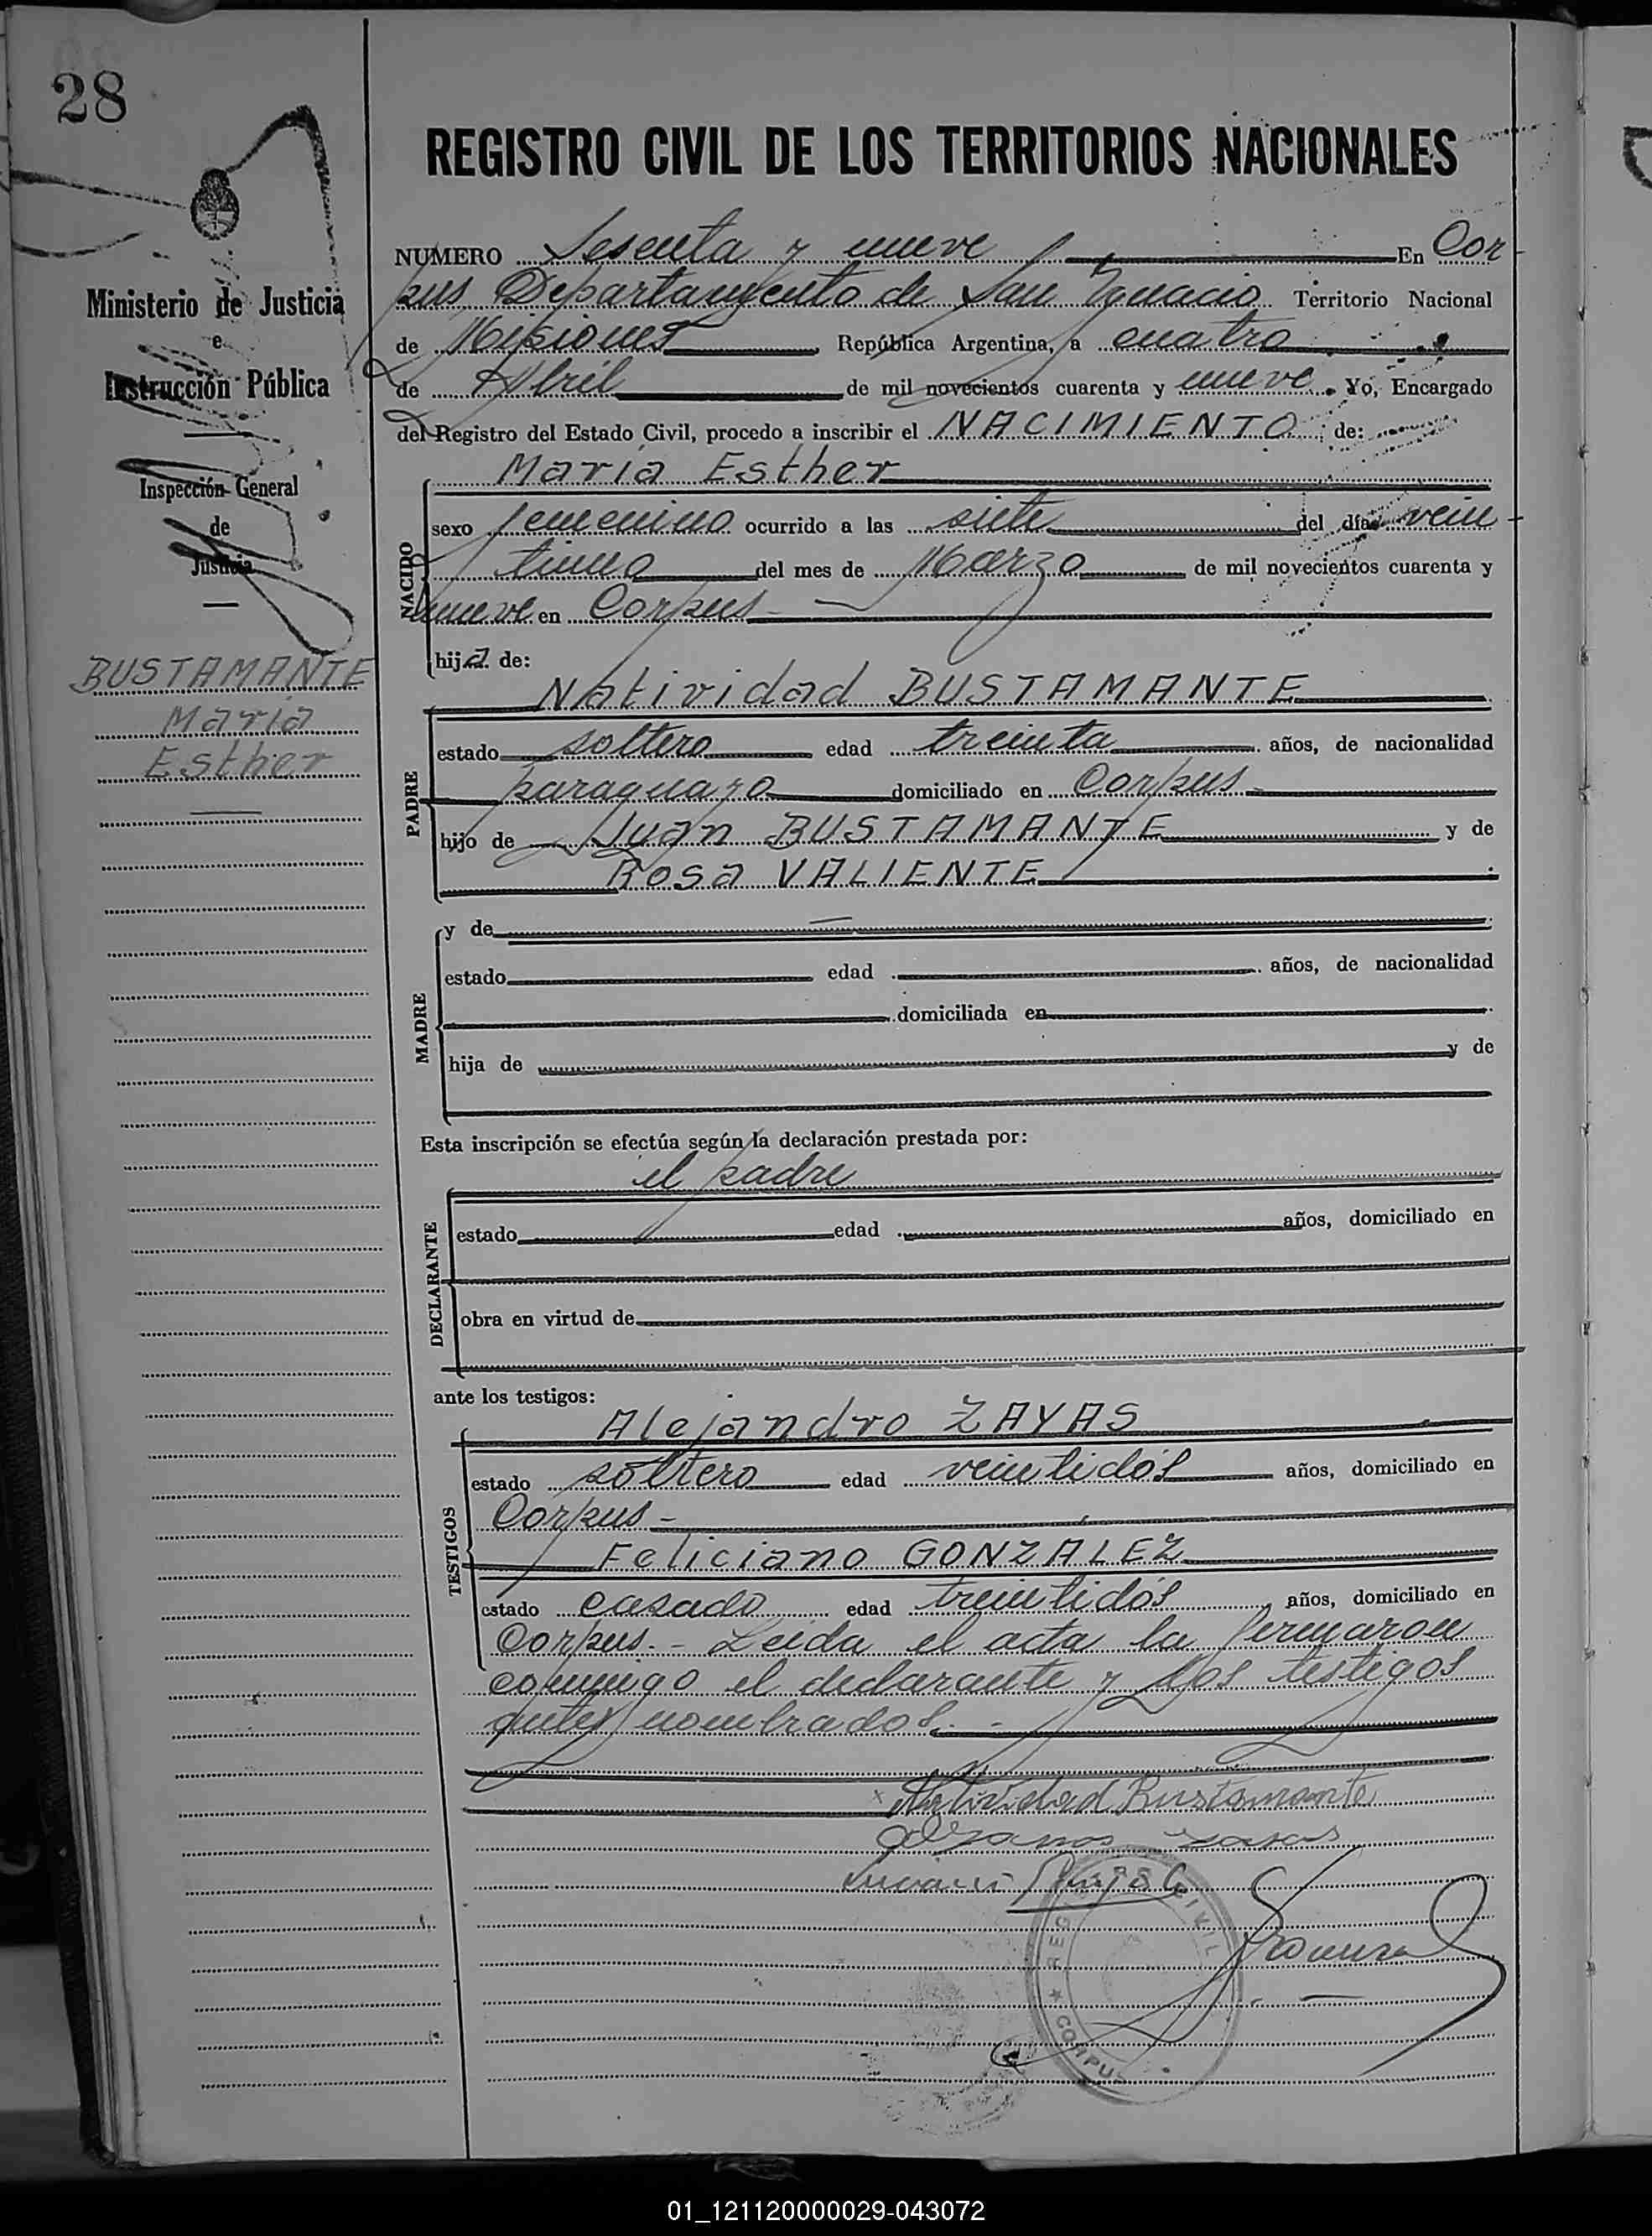 28
REGISTRO CIVIL DE LOS TERRITORIOS NACIONALES
Ministerio de Justicia
e
Instrucción Pública
Inspección General
de
Justicia
BUSTAMANTE
Maria
Esther
NUMERO Sesenta y nueve En Cor-
pus Departamento de San Ignacio Territorio Nacional
de Misiones República Argentina, a cuatro
de Abril de mil novecientos cuarenta y nueve. Yo, Encargado
del Registro del Estado Civil, procedo a inscribir el NACIMIENTO de:
María Esther
NACIDO
sexo femenino ocurrido a las siete del día vein
tiuno del mes de Marzo de mil novecientos cuarenta y
nueve en Corpus
hija de:
Natividad BUSTAMANTE
PADRE
estado soltero edad treinta años, de nacionalidad
paraguayo domiciliado en Corpus
hijo de Juan BUSTAMANTE y de
Rosa VALIENTE
MADRE
y de
estado edad años, de nacionalidad
domiciliada en
hija de y de
Esta inscripción se efectúa según la declaración prestada por:
el padre
DECLARANTE
estado edad años, domiciliado en
obra en virtud de
ante los testigos:
Alejandro ZAYAS
TESTIGOS
estado soltero edad veintidós años, domiciliado en
Corpus-
Feliciano GONZALEZ
estado casado edad treintidós años, domiciliado en
Corpus.- Leida el acta la firmaron
conmigo el declarante y los testigos
antes nombrados.-
x Natividad Bustamante
REG CIVIL
★ CORPUS
01_121120000029-043072